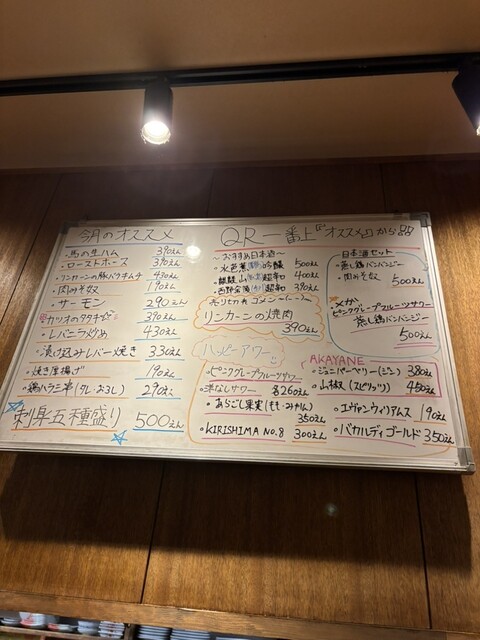 今月のオススメ
・馬の生ハム 390えん
・ローストホース 390えん
・リンカーンの豚バラキムチ 430えん
・肉みそなス 190えん
・サーモン 290えん
・カツオのタタキ 390えん
・レバニラ炒め 430えん
・漬け込みレバー焼き 330えん
・焼き厚揚げ 190えん
・鶏ハラミ串(タレ・おろし) 290えん
刺身五種盛り 500えん
QR一番上『オススメ』から
〜おすすめ日本酒〜
・水芭蕉 吟醸 500えん
・麒麟山 超辛口 400えん
・西野金陵 超辛口 390えん
売り切れ
リンカーンの焼肉 390えん
ハッピーアワー
・ピンクグレープフルーツサワー
・洋なしサワー 各260えん
・あらごし果実(もも・みかん) 350えん
・KIRISHIMA No.8 300えん
日本酒セット
・蒸し鶏バンバンジー
・肉みそなス 500えん
メガ
ピンクグレープフルーツサワー
蒸し鶏バンバンジー 500えん
AKAYANE
・ジュニパーベリー(ジン) 380えん
・山椒(スピリッツ) 450えん
・エヴァンウィリアムス 190えん
・バカルディゴールド 350えん